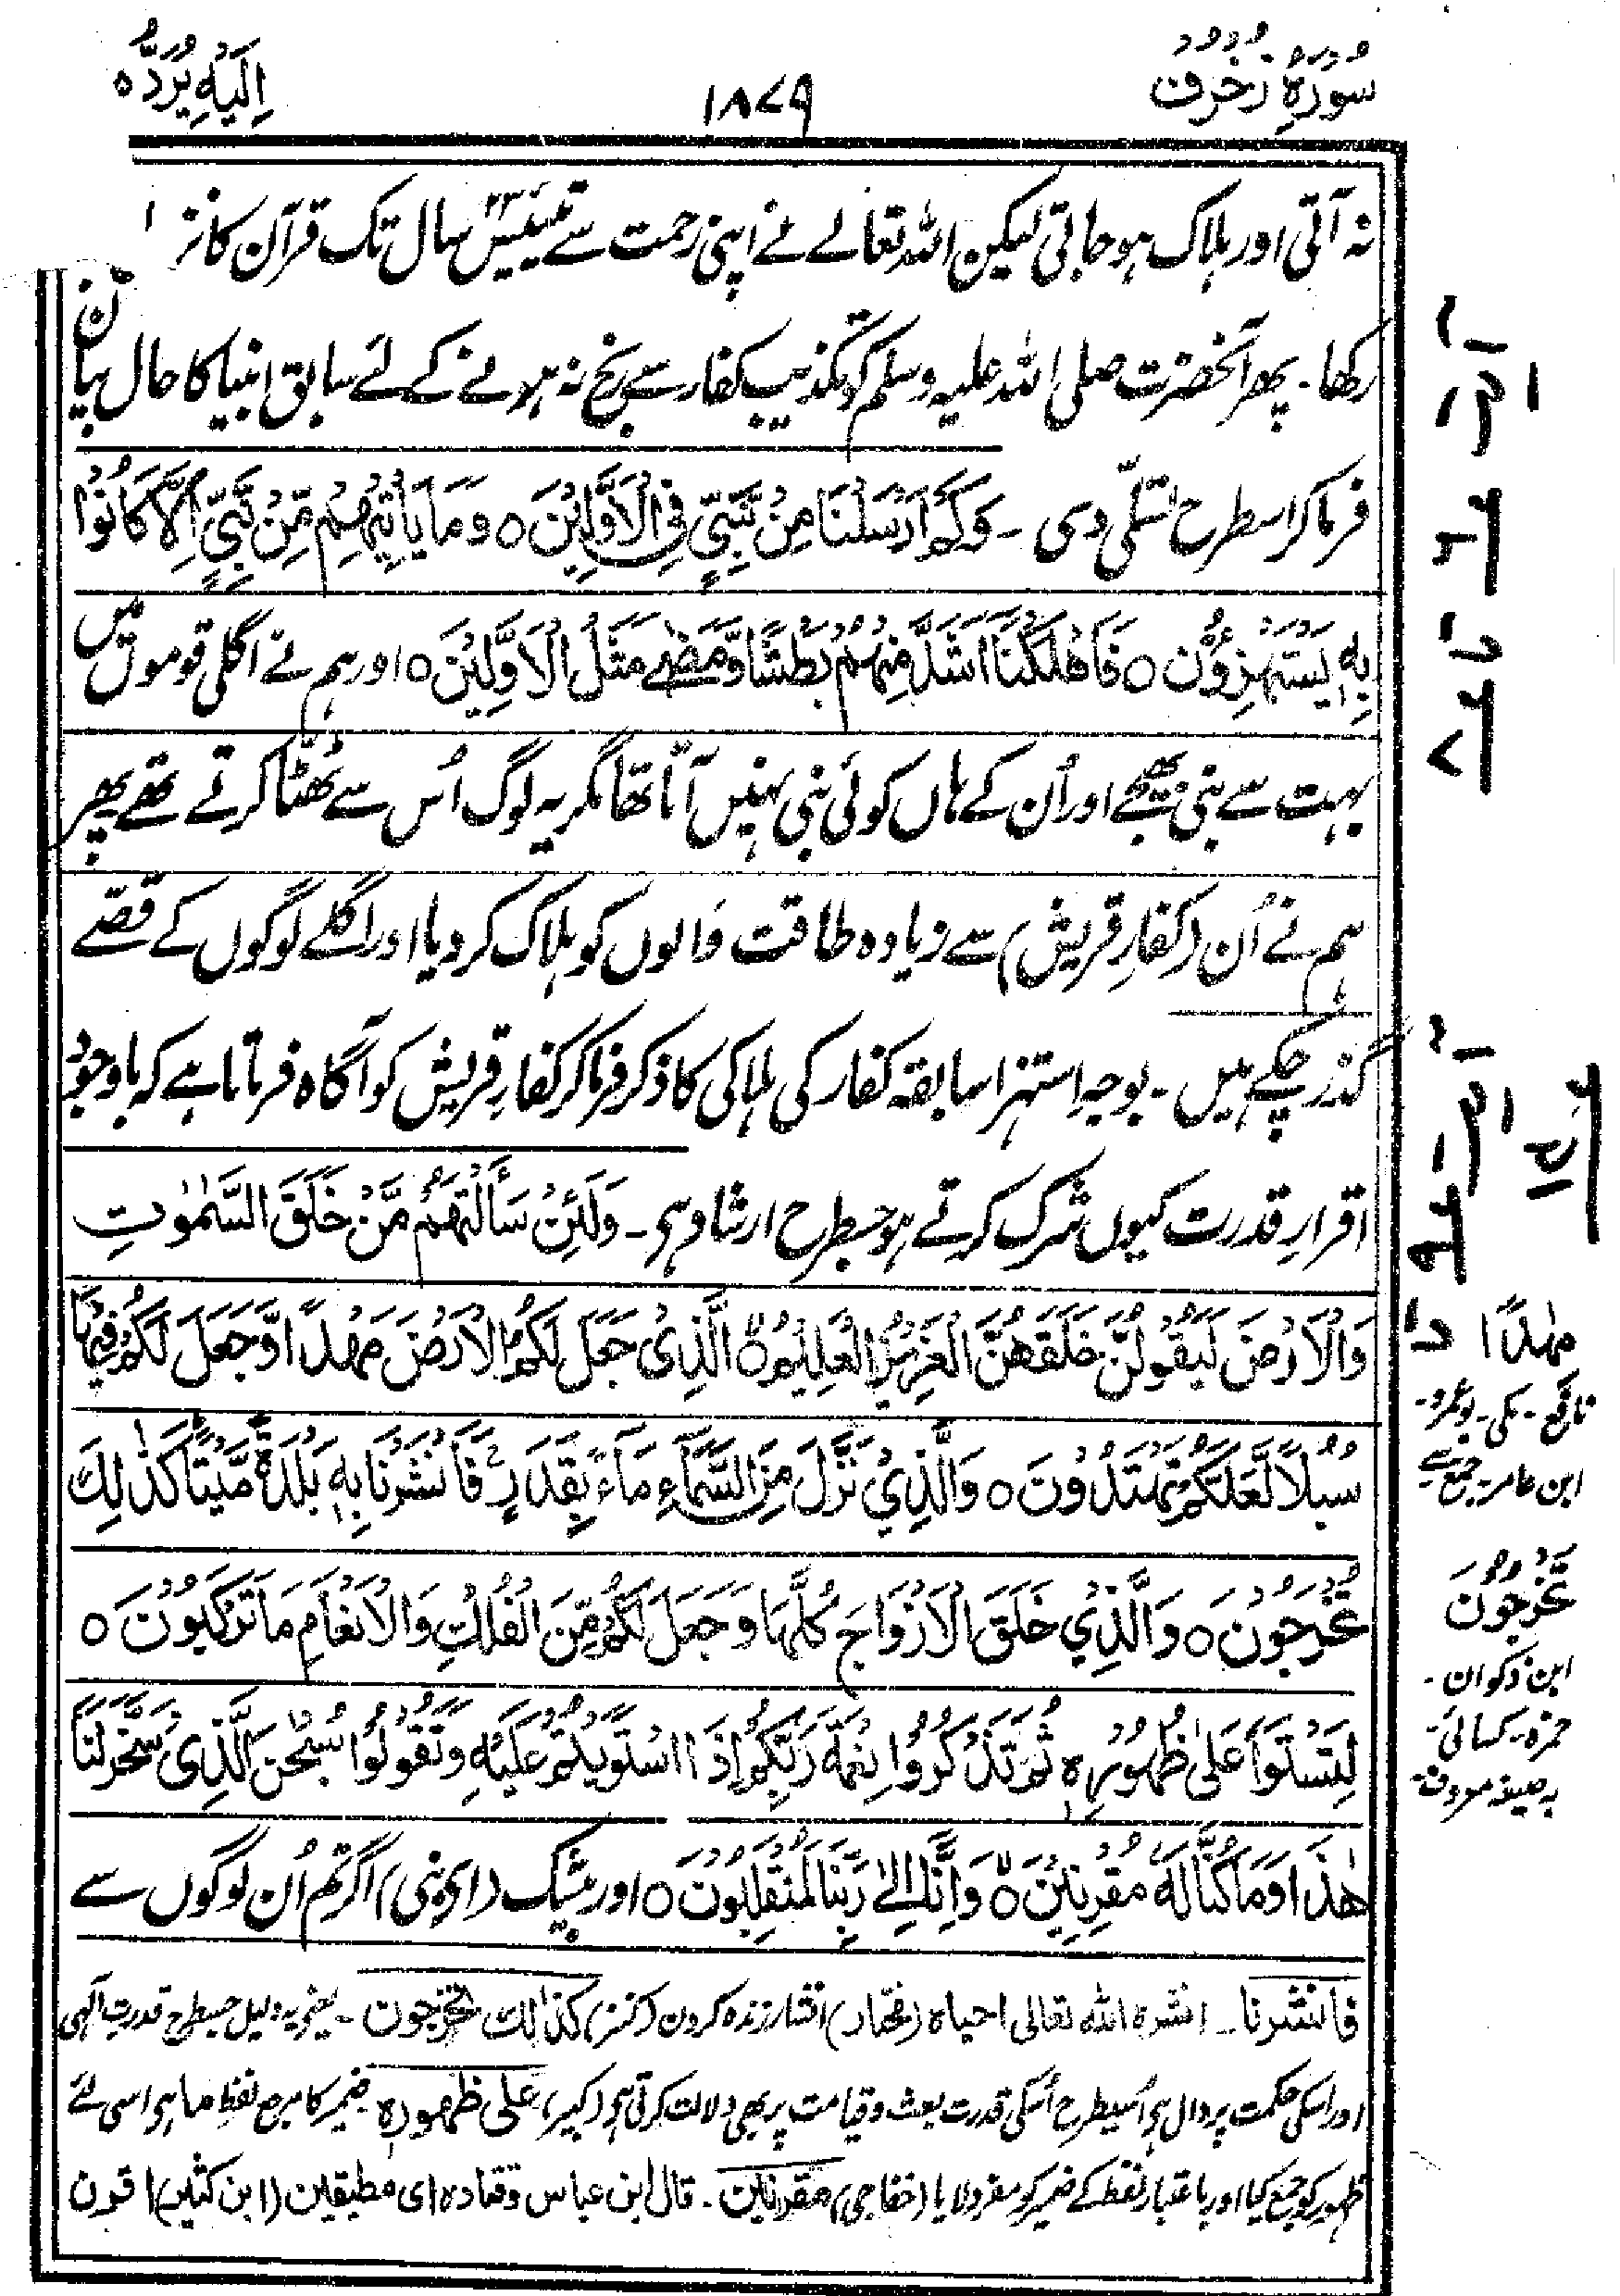 سُوْرَۃُ زُخْرُف
۱۸۷۹
اِلَیْہِ یُرَدُّ ۲۵
نہ آتی اور ہلاک ہو جاتی لیکن اللہ تعالے نے اپنی رحمت سے تئیس ۲۳ سال تک قرآن کا
رکھا۔ پھر آنحضرت صلی اللہ علیہ وسلم کو تکذیب کفار سے رنج نہ ہونے کے لئے سابق انبیا کا حال بیان
فرما کر اسطرح تسلّی دی ۔ وَكَمْ اَرْسَلْنَا مِنْ نَّبِيٍّ فِی الْاَوَّلِيْنَ ○ وَمَا يَاْتِيْهِمْ مِّنْ نَّبِيٍّ اِلَّا كَانُوْا
بِهٖ يَسْتَهْزِءُوْنَ ○ فَاَهْلَكْنَا اَشَدَّ مِنْهُمْ بَطْشًا وَّمَضٰے مَثَلُ الْاَوَّلِيْنَ ○ اور ہم نے اگلی قوموں میں
بہت سے نبی بھیجے اور اُن کے ہاں کوئی نبی نہیں آتا تھا مگر یہ لوگ اُس سے ٹھٹا کرتے تھے پھر
ہم نے اُن (کفارِ قریش) سے زیادہ طاقت والوں کو ہلاک کر دیا اور اگلے لوگوں کے قصّے
گذر چکے ہیں ۔ بوجہِ استہزا سابقہ کفار کی ہلاکی کا ذکر فرما کر کفارِ قریش کو آگاہ فرماتا ہے کہ باوجود
اقرارِ قدرت کیوں شرک کرتے ہو جسطرح ارشاد ہی ۔ وَلَئِنْ سَاَلْتَهُمْ مَّنْ خَلَقَ السَّمٰوٰتِ
وَالْاَرْضَ لَيَقُوْلُنَّ خَلَقَهُنَّ الْعَزِيْزُ الْعَلِيْمُ ○ الَّذِیْ جَعَلَ لَكُمُ الْاَرْضَ مَهْدًا وَّجَعَلَ لَكُمْ فِيْهَا
سُبُلًا لَّعَلَّكُمْ تَهْتَدُوْنَ ○ وَالَّذِيْ نَزَّلَ مِنَ السَّمَآءِ مَآءً بِقَدَرٍ فَاَنْشَرْنَا بِهٖ بَلْدَةً مَّيْتًا كَذٰلِكَ
تُخْرَجُوْنَ ○ وَالَّذِيْ خَلَقَ الْاَزْوَاجَ كُلَّهَا وَجَعَلَ لَكُمْ مِّنَ الْفُلْكِ وَالْاَنْعَامِ مَا تَرْكَبُوْنَ ○
لِتَسْتَوٗا عَلٰى ظُهُوْرِهٖ ثُمَّ تَذْكُرُوْا نِعْمَةَ رَبِّكُمْ اِذَا اسْتَوَيْتُمْ عَلَيْهِ وَتَقُوْلُوْا سُبْحٰنَ الَّذِیْ سَخَّرَ لَنَا
هٰذَا وَمَا كُنَّا لَهٗ مُقْرِنِيْنَ ○ وَاِنَّا اِلٰے رَبِّنَا لَمُنْقَلِبُوْنَ ○ اور بیشک (اے نبی) اگر تم اُن لوگوں سے
فانشرنا ۔ انشرہ اللہ تعالی احیاہ (مختار) انشار زندہ کردن (کنز) کذٰلک تخرجون ۔ یعنی یہ دلیل جسطرح قدرتِ الٰہی
اور اسکی حکمت پر دال ہی اُسیطرح اُسکی قدرت بعث و قیامت پر بھی دلالت کرتی ہی (کبیر) علی ظھورہ ضمیر کا مرجع لفظِ ما ہی اسی لئے
ظہور کو جمع کیا اور باعتبار لفظ کے ضمیر کو مفرد لایا (خفاجی) مقرنین ۔ قال ابن عباس وقتادہ ای مطیقین (ابن کثیر) اقرن
مٰهدًا
نافع ۔ مکی ۔ بوعمرو ۔
ابن عامر ۔ جمع سے
تَخْرُجُوْنَ
ابن ذکوان ۔
حمزہ ۔ کسائی ۔
بہ صیغہ معروف